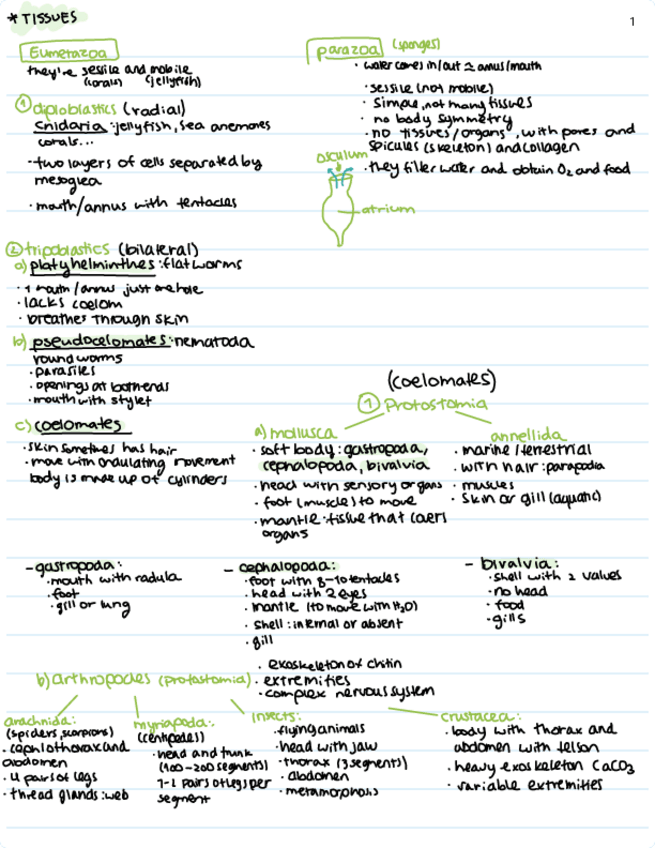 * TISSUES
1
Eumetazoa
they're sessile and mobile
(corals) (jellyfish)
① diploblastics (radial)
cnidaria: jellyfish, sea anemones
corals...
- two layers of cells separated by
mesoglea
· mouth/annus with tentacles
parazoa (sponges)
· water comes in/out ≈ annus/mouth
· sessile (not mobile)
· simple, not many tissues
· no body symmetry
· no tissues/organs, with pores and
spicules (skeleton) and collagen
· they filter water and obtain O₂ and food
osculum
atrium
② tripoblastics (bilateral)
a) platyhelminthes: flatworms
· 1 mouth/annus just one hole
· lacks coelom
· breathes through skin
b) pseudocelomates: nematoda
roundworms
· parasites
· openings at both ends
· mouth with stylet
c) coelomates
· skin sometimes has hair
· move with ondulating movement
body is made up of cylinders
(coelomates)
① Protostomia
a) mollusca
· soft body: gastropoda,
cephalopoda, bivalvia
· head with sensory organs
· foot (muscle) to move
· mantle: tissue that covers
organs
annellida
· marine/terrestrial
· with hair: parapodia
· muscles
· skin or gill (aquatic)
- gastropoda:
· mouth with radula
· foot
· gill or lung
- cephalopoda:
· foot with 8-10 tentacles
· head with 2 eyes
· mantle (to move with H₂O)
· shell: internal or absent
· gill
- bivalvia:
· shell with 2 values
· no head
· food
· gills
b) arthropodes (protostomia)
· exoskeleton of chitin
· extremities
· complex nervous system
arachnida:
(spiders, scorpions)
· cephlothorax and
abdomen
· 4 pairs of legs
· thread glands: web
myriapoda:
(centipedes)
· head and trunk
(100-200 segments)
1-2 pairs of legs per
segment
insects:
· flying animals
· head with jaw
· thorax (3 segments)
· abdomen
· metamorphosis
crustacea:
· body with thorax and
abdomen with telson
· heavy exoskeleton CaCO₃
· variable extremities